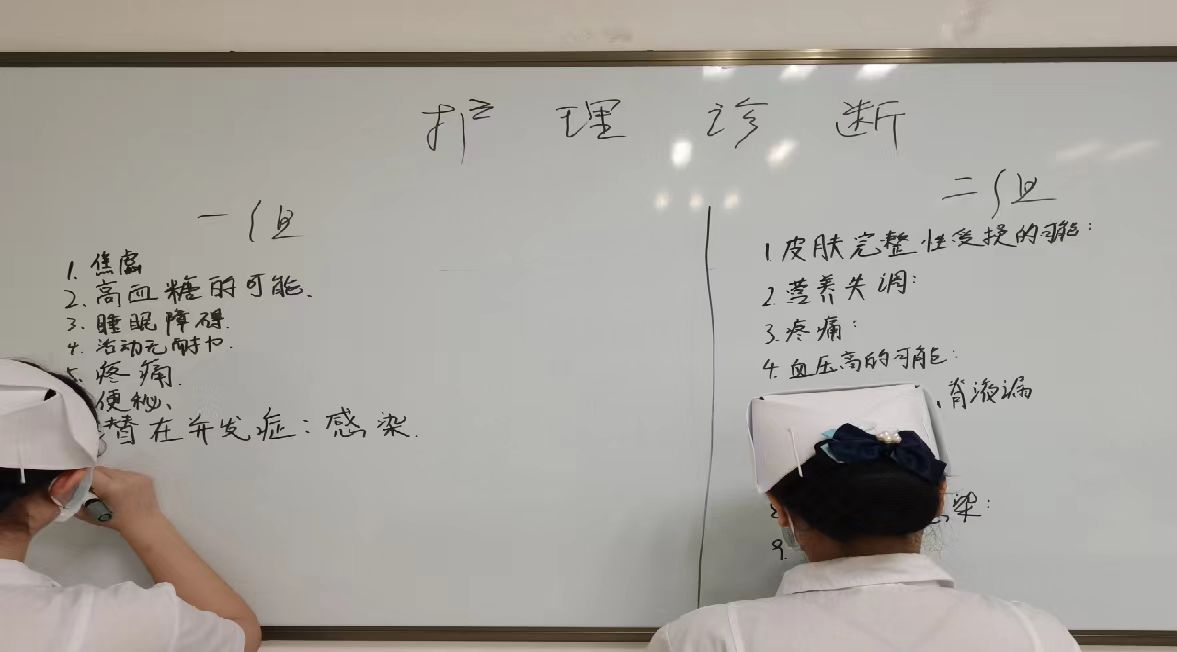 护理诊断
一组
1. 焦虑
2. 高血糖的可能.
3. 睡眠障碍.
4. 活动无耐力.
5. 疼痛.
便秘、
潜在并发症:感染.
二组
1. 皮肤完整性受损的可能:
2. 营养失调:
3. 疼痛:
4. 血压高的可能:
、脊液漏
染:
9.